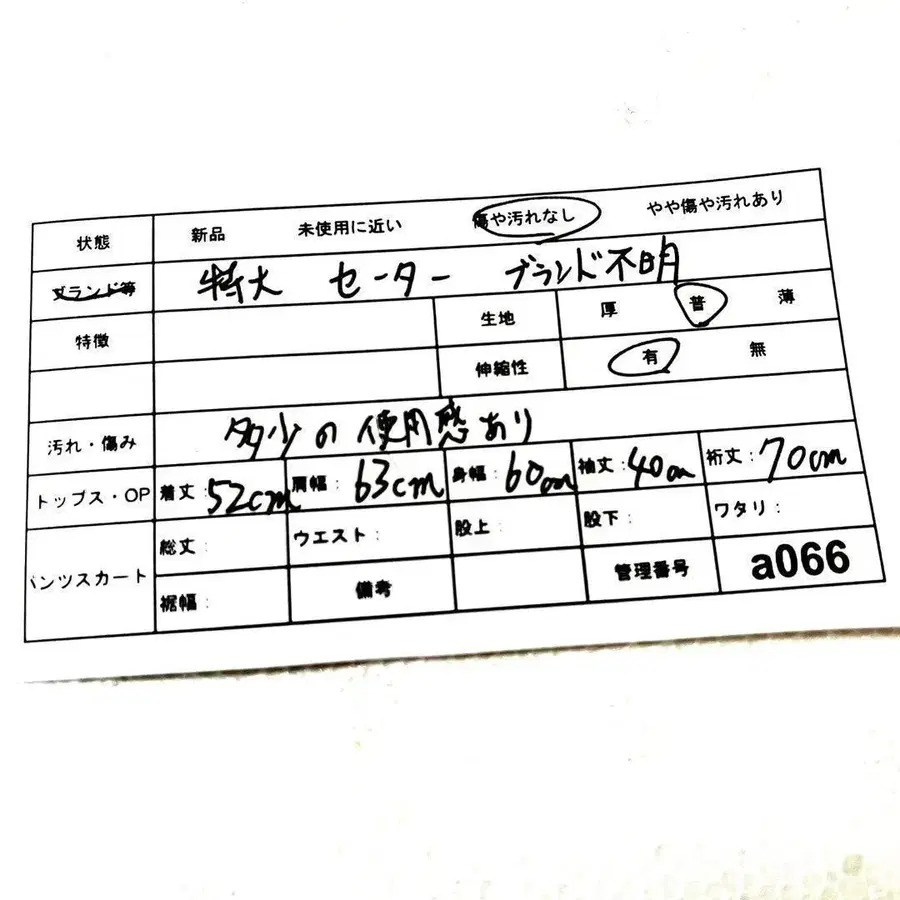 状態 新品 未使用に近い 傷や汚れなし やや傷や汚れあり
ブランド等 特大 セーター ブランド不明
特徴 生地 厚 普 薄
伸縮性 有 無
汚れ・傷み 多少の使用感あり
トップス・OP 着丈:52cm 肩幅:63cm 身幅:60cm 袖丈:40cm 裄丈:70cm
パンツスカート 総丈: ウエスト: 股上: 股下: ワタリ:
裾幅: 備考 管理番号 a066